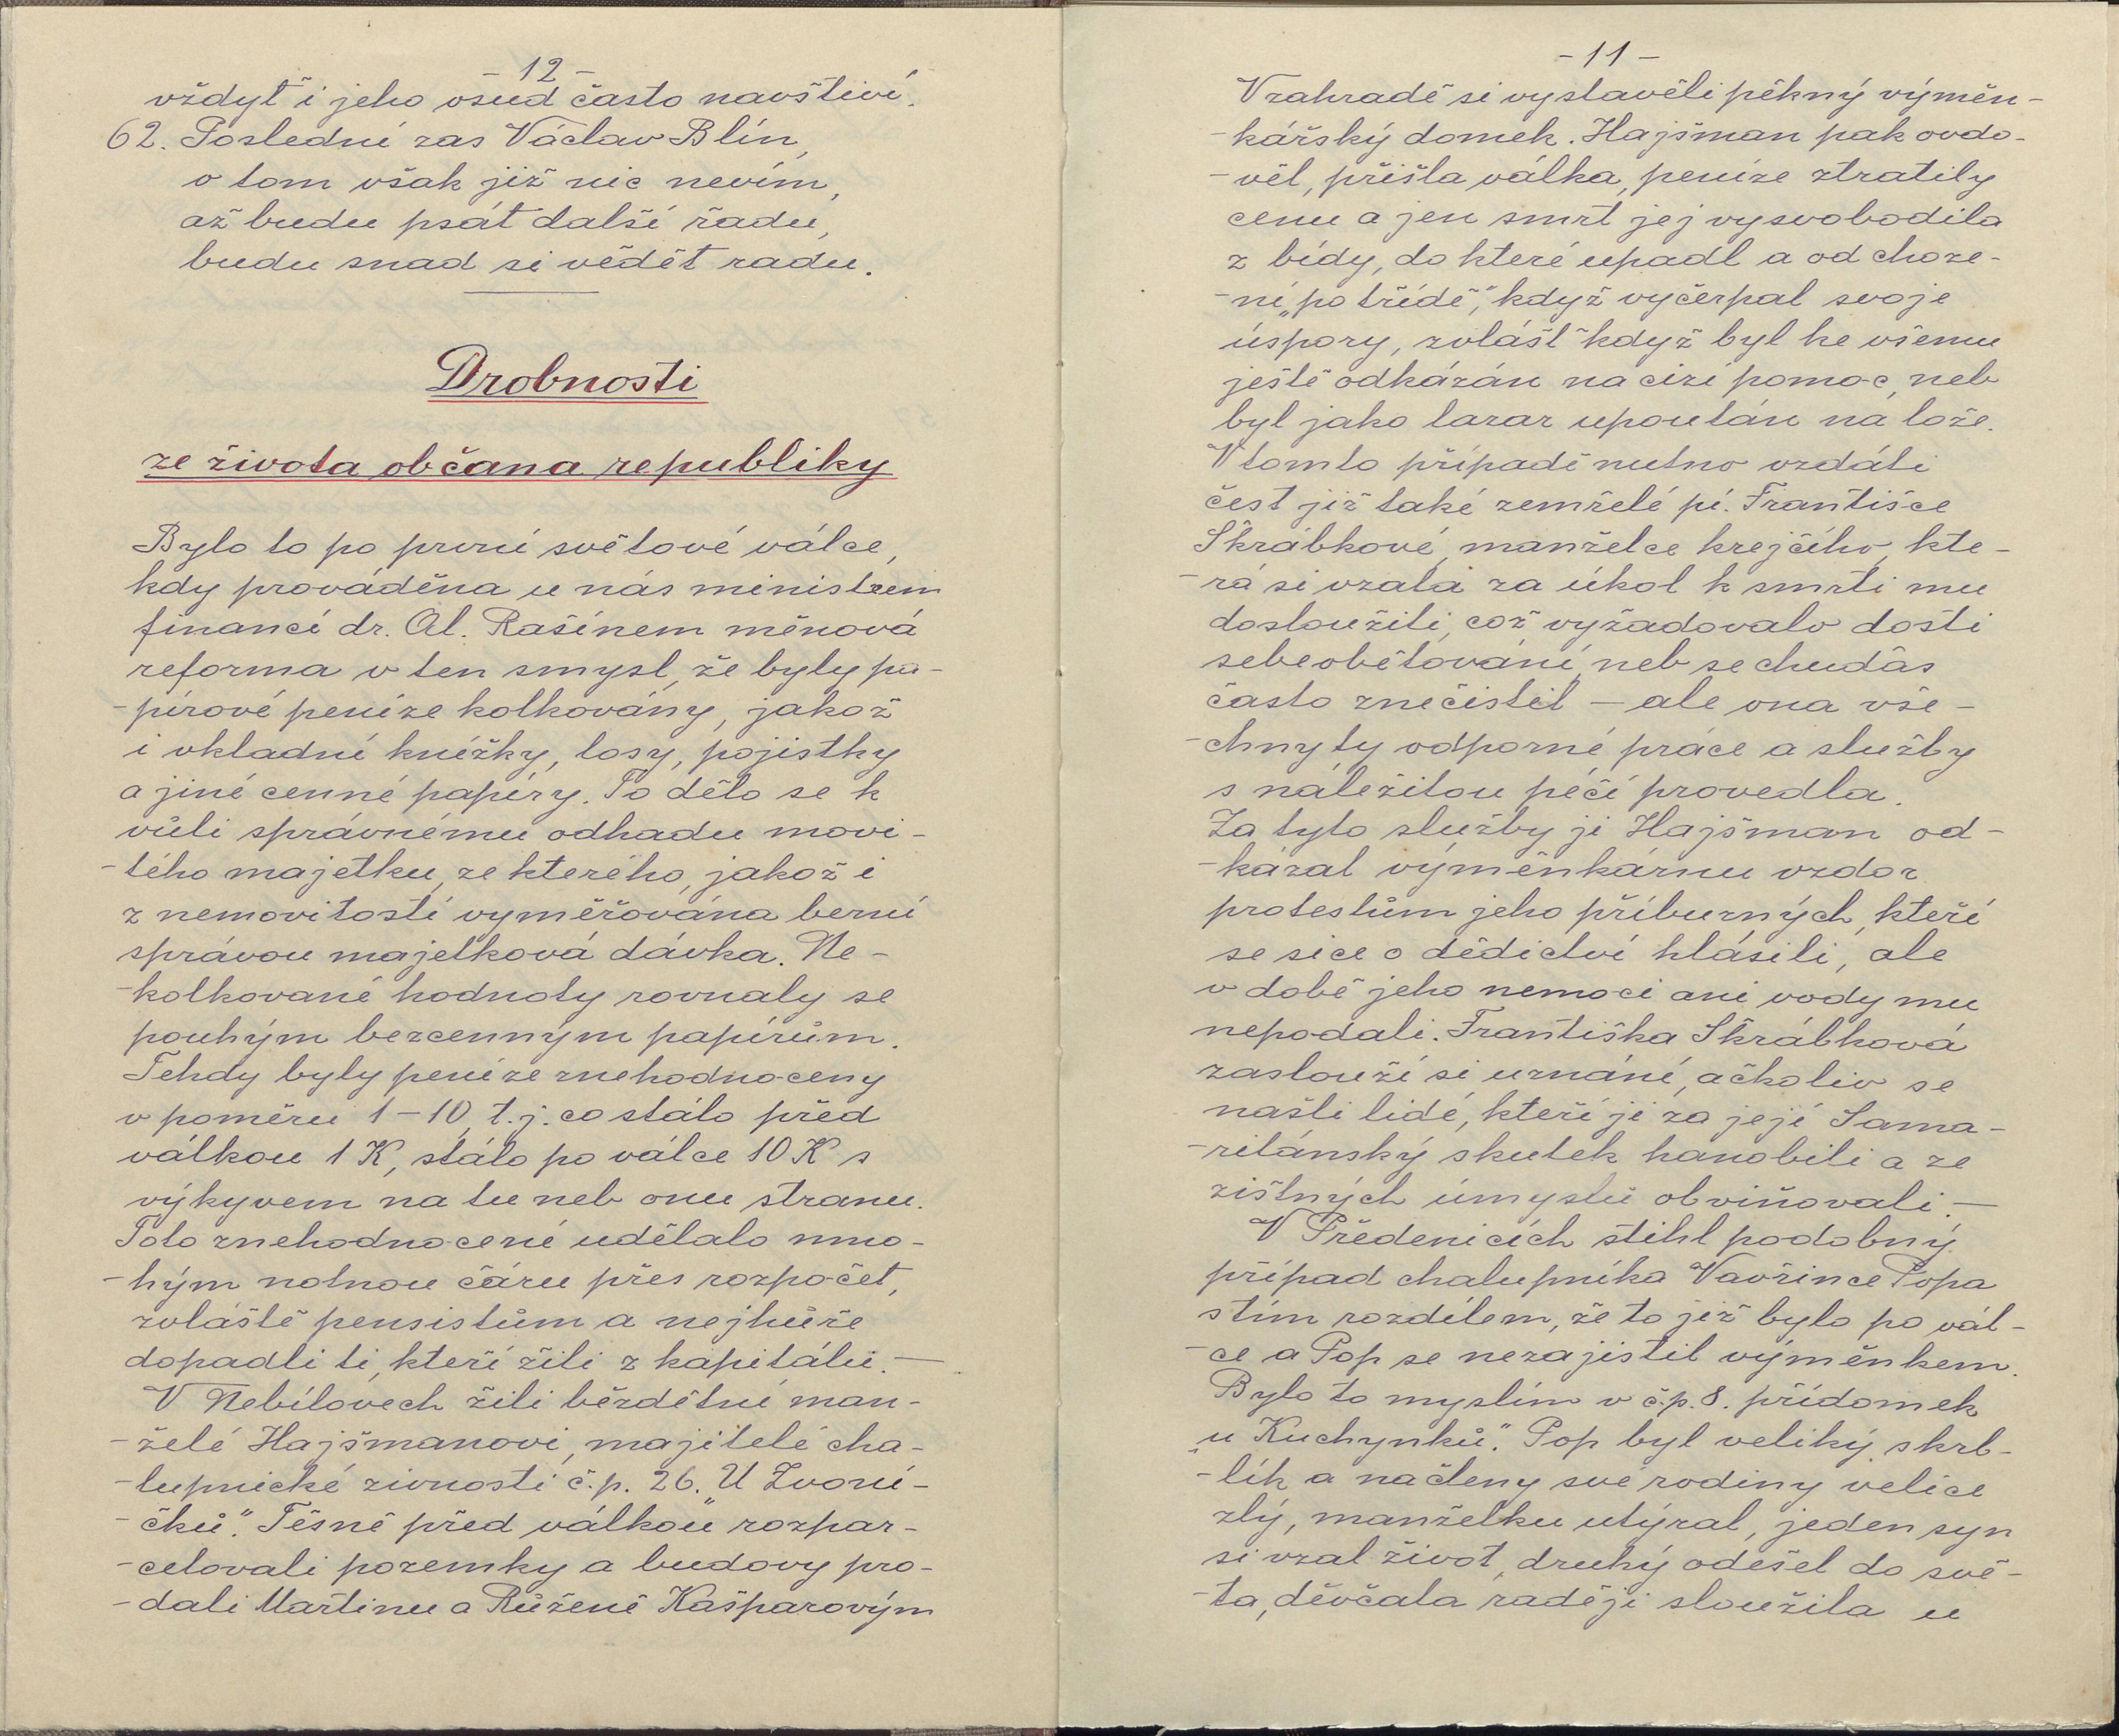 - 12 -
vždyť i jeho osud často navštíví.
62. Poslední zas Václav Blín,
o tom však již nic nevím,
až budu psát další řadu,
budu snad si vědět radu.
Drobnosti
ze života občana republiky
Bylo to po první světové válce,
kdy prováděna u nás ministrem
financí dr. Al. Rašínem měnová
reforma v ten smysl, že byly pa-
-pírové peníze kolkovány, jakož
i vkladní knížky, losy, pojistky
a jiné cenné papíry. To dělo se k
vůli správnému odhadu movi-
-tého majetku, ze kterého, jakož i
z nemovitostí vyměřována berní
správou majetková dávka. Ne-
-kolkované hodnoty rovnaly se
pouhým bezcenným papírům.
Tehdy byly peníze znehodnoceny
v poměru 1-10, t.j. co stálo před
válkou 1 K, stálo po válce 10 K s
výkyvem na tu neb onu stranu.
Toto znehodnocení udělalo mno-
-hým notnou čáru přes rozpočet,
zvláště pensistům a nejhůře
dopadli ti, kteří žili z kapitálu. —
V Nebílovech žili bězdětní man-
-želé Hajšmanovi, majitelé cha-
-lupnické živnosti č.p. 26. „U Zvoní-
-čků". Těsně před válkou rozpar-
-celovali pozemky a budovy pro-
-dali Martinu a Růženě Kašparovým
- 11 -
V zahradě si vystavěli pěkný výměn-
-kářský domek. Hajšman pak ovdo-
-věl, přišla válka, peníze ztratily
cenu a jen smrt jej vysvobodila
z bídy, do které upadl a od choze-
-ní „po třídě", když vyčerpal svoje
úspory, zvlášť když byl ke všemu
ještě odkázán na cizí pomoc, neb
byl jako lazar upoután na lože.
V tomto případě nutno vzdáti
čest již také zemřelé pí. Františce
Škrábkové, manželce krejčího, kte-
-rá si vzala za úkol k smrti mu
dosloužiti, což vyžadovalo dosti
sebeobětování, neb se chudás
často znečistil — ale ona vše-
-chny ty odporné práce a služby
s náležitou péčí provedla.
Za tyto služby jí Hajšman od-
-kázal výměnkárnu vzdor
protestům jeho příbuzných, kteří
se sice o dědictví hlásili, ale
v době jeho nemoci ani vody mu
nepodali. Františka Škrábková
zaslouží si uznání, ačkoliv se
našli lidé, kteří ji za její Sama-
-ritánský skutek hanobili a ze
zištných úmyslů obviňovali. —
V Předenicích stihl podobný
případ chalupníka Vavřince Popa
s tím rozdílem, že to již bylo po vál-
-ce a Pop se nezajistil výměnkem.
Bylo to myslím v č.p. 8. přídomek
„u Kuchynků". Pop byl veliký skrb-
-lík a na členy své rodiny velice
zlý, manželku utýral, jeden syn
si vzal život, druhý odešel do svě-
-ta, děvčata raději sloužila u